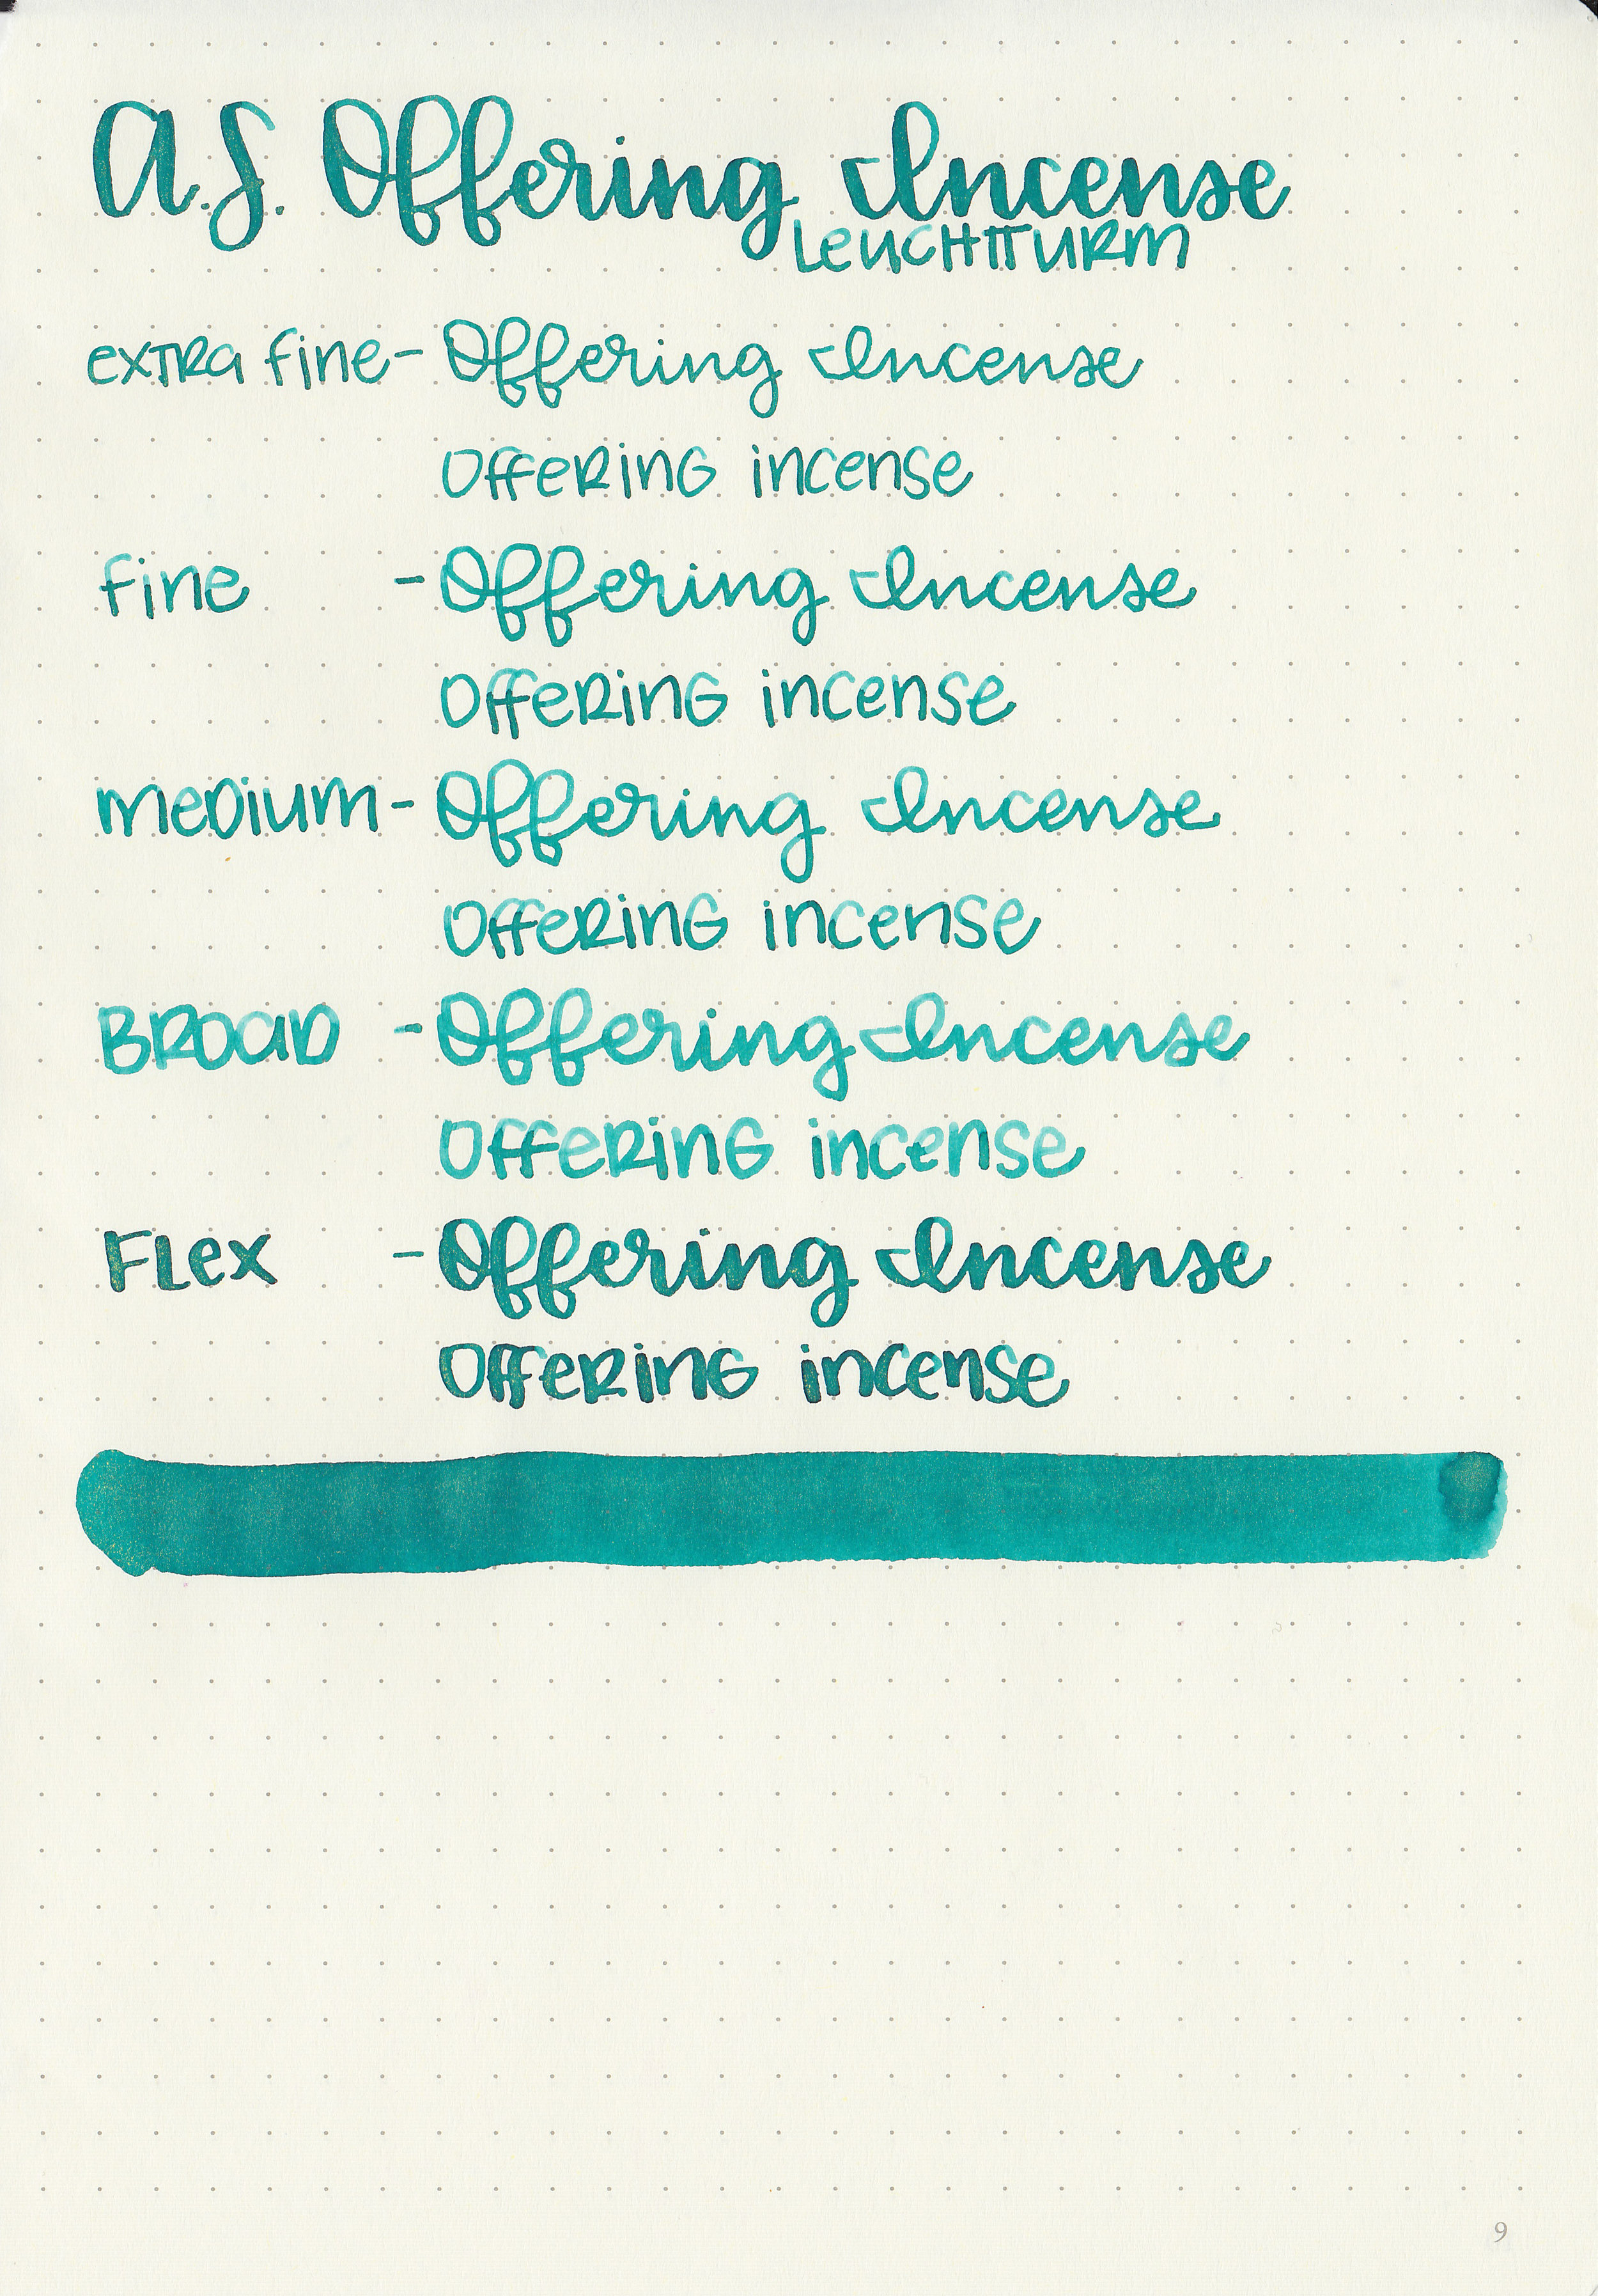 A.S. Offering Incense
Leuchtturm
extra fine - Offering Incense
Offering incense
fine - Offering Incense
Offering incense
medium - Offering Incense
Offering incense
Broad - Offering Incense
Offering incense
Flex - Offering Incense
Offering incense
9